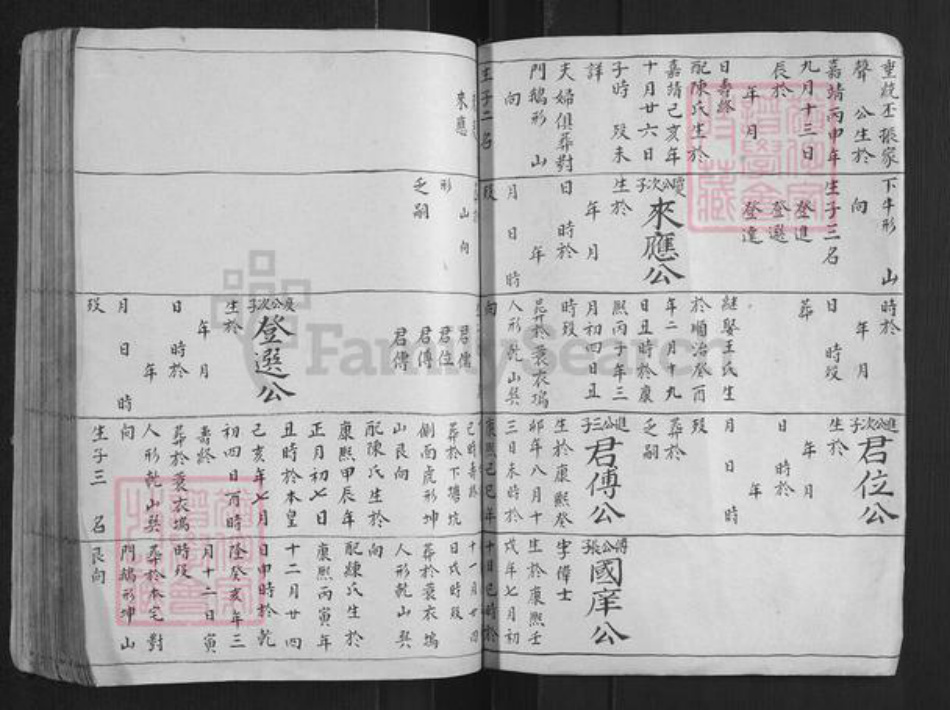 重統丕張家
聲 公生於
嘉靖丙申年
九月十三日
辰於
年 月
日壽終
配陳氏生於
嘉靖己亥年
十月廿六日
子時 歿未
詳
夫婦俱葬對
門鵝形 山
向
生子二名
來應
下牛形 山
向
生子三名
登進
登選
登達
公次子
來應公
生於
年 月
日 時於
年
月 日 時
歿
形 山 向
乏嗣
時於
年 月
日 時歿
葬
繼娶王氏生
於順治癸酉
年二月十九
日丑時於康
熙丙子年三
月初四日丑
時歿
葬於蓑衣塢
人形乾山巽
向
君儒
君位
君傳
君傅
公次子
登選公
生於
年 月
日 時於
年
月 日 時
歿
進公次子
君位公
生於
年 月
日 時於
年
月 日 時
歿
葬於
乏嗣
進公三子
君傅公
生於康熙癸
卯年八月十
三日未時於
康熙己巳年
己時壽終
葬於下塘坑
側南虎形坤
山艮向
配陳氏生於
康熙甲辰年
正月初七日
丑時於本皇
己亥年七月
初四日酉時
壽終
葬於蓑衣塢
人形乾山巽
向
生子三 名
傅公長子
國庠公
字偉士
生於康熙壬
戌年七月初
十日巳時於
十一月廿四
日戌時歿
葬於蓑衣塢
人形乾山巽
向
配練氏生於
康熙丙寅年
十二月廿四
日申時於乾
隆癸亥年三
月十二日寅
時歿
葬於本宅對
門鵝形坤山
艮向
FamilySearch